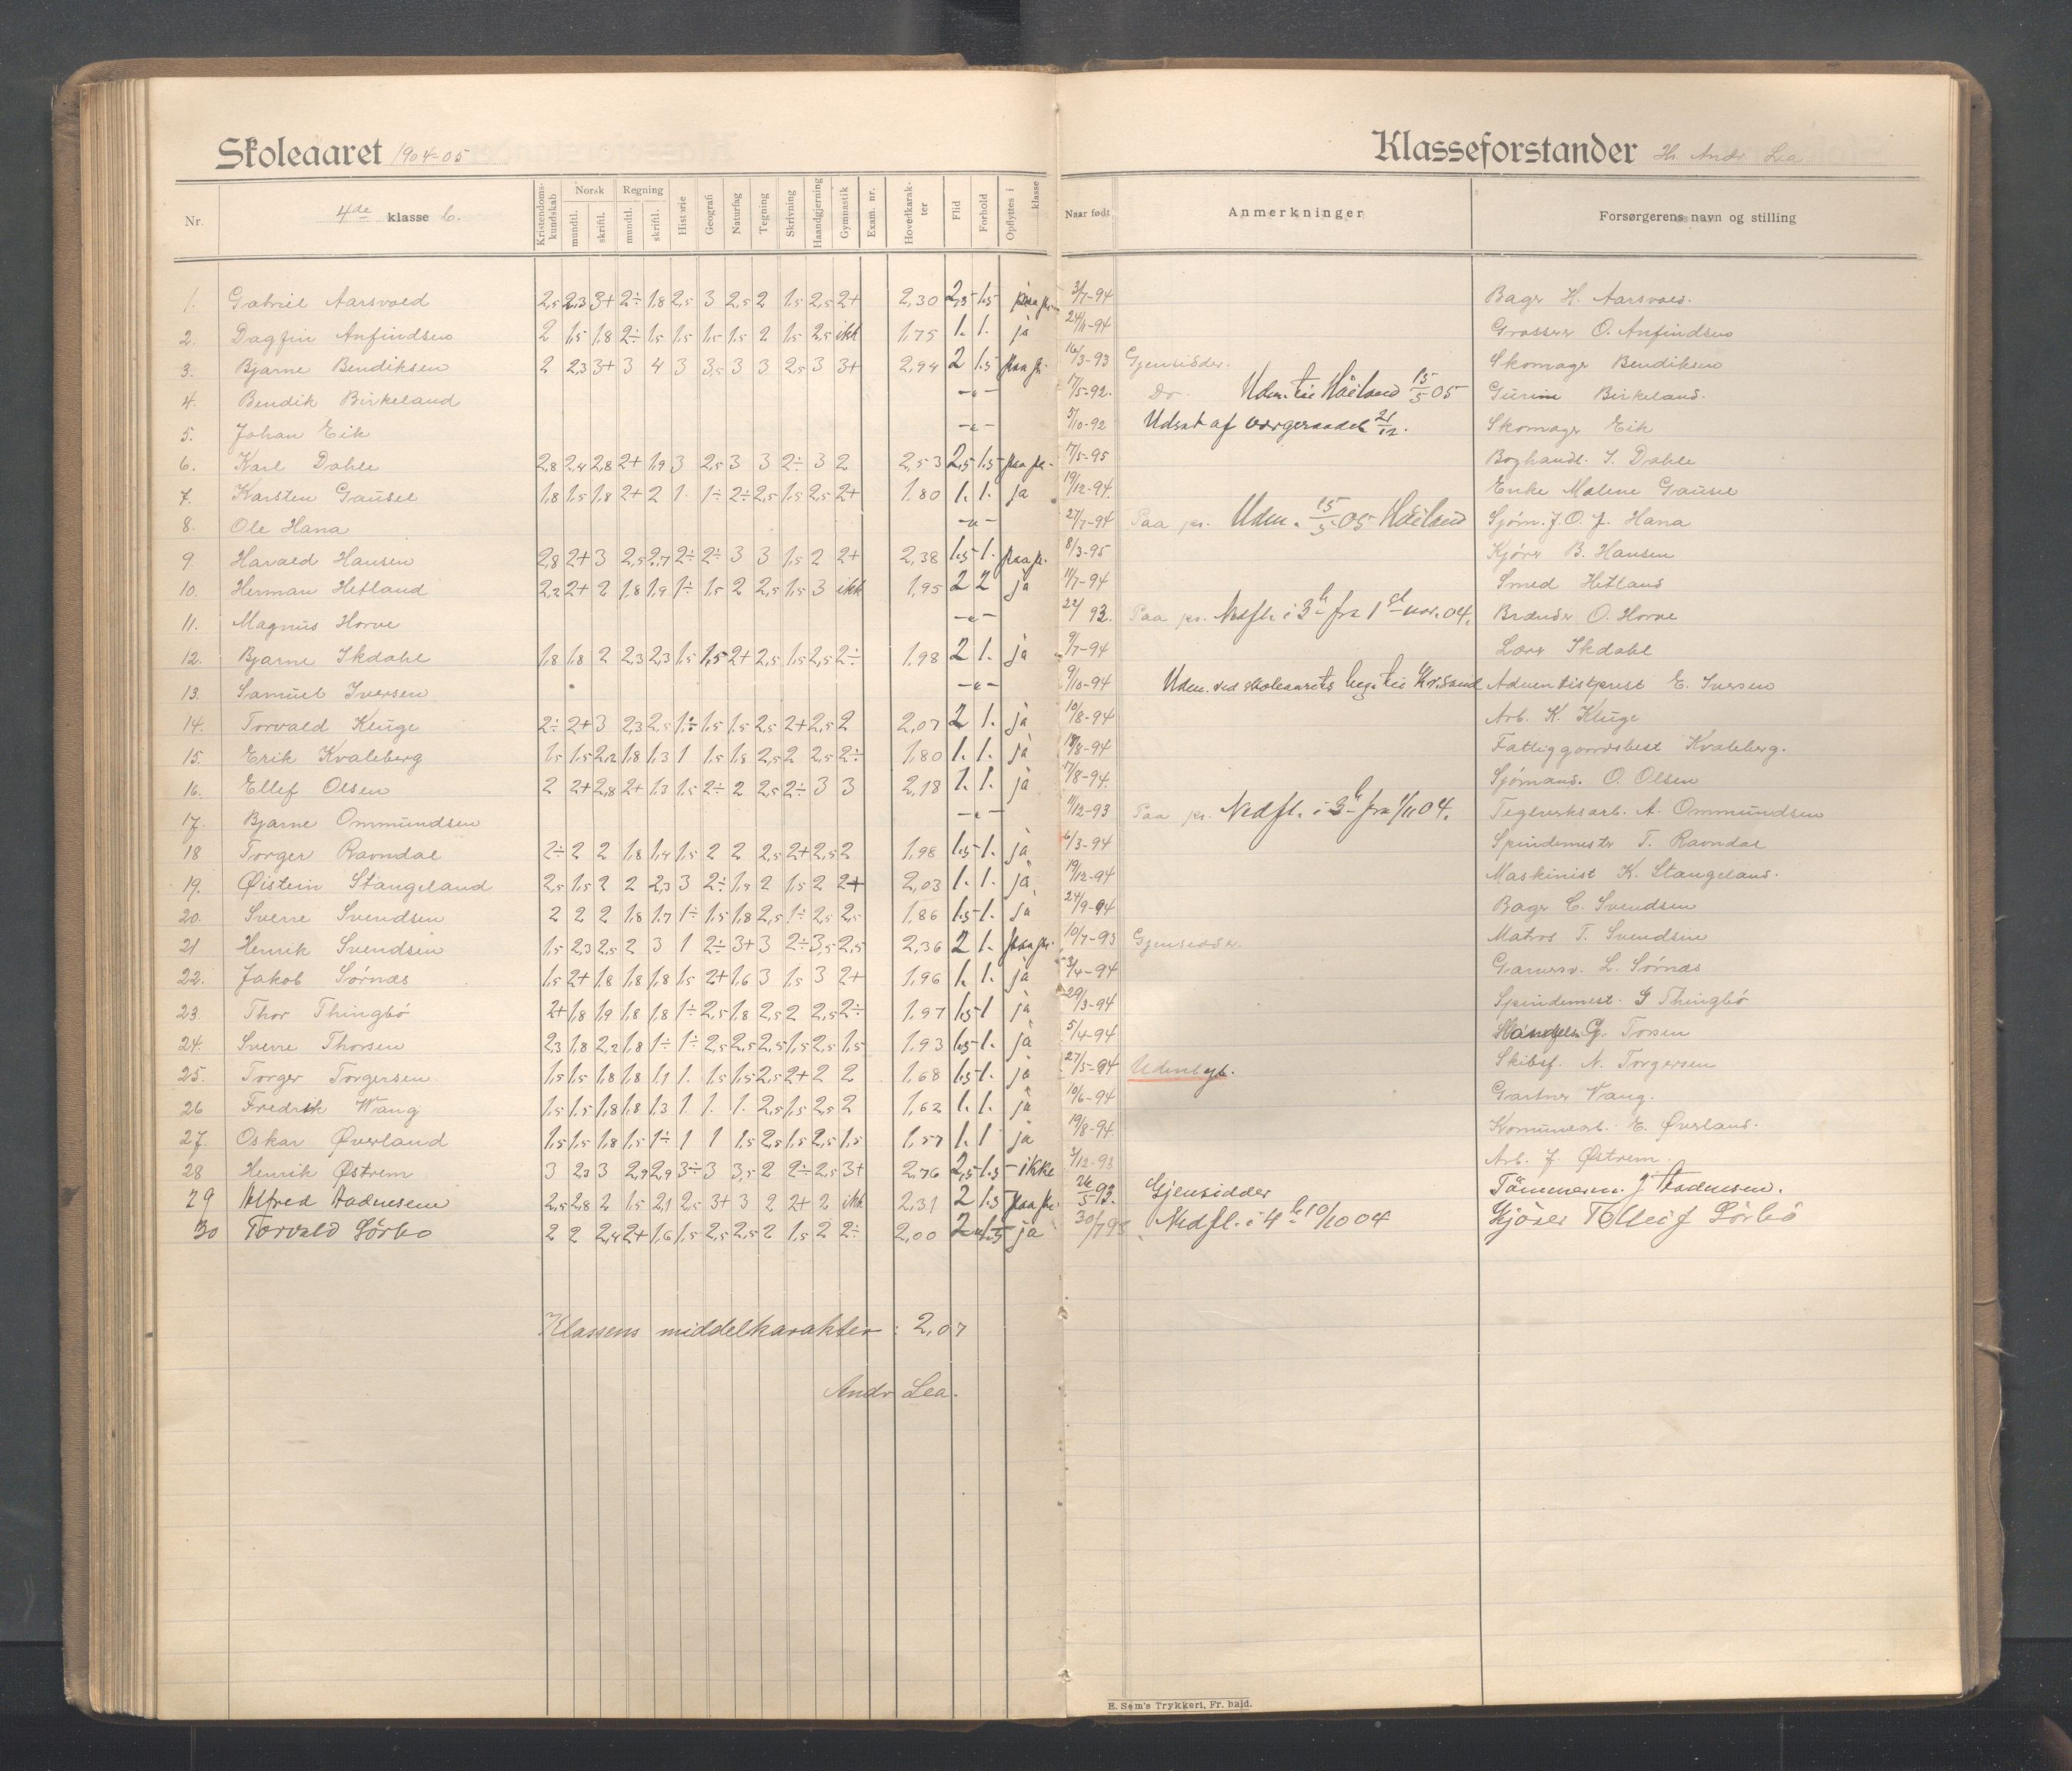 Skoleaaret 1904-05
Klasseforstander Hr. Andr Lea
Nr. 4de klasse C. Kristendoms-kundskab Norsk mundtl. skriftl. Regning mundtl. skriftl. Historie Geografi Naturfag Tegning Skrivning Haandgjerning Gymnastik Exam. nr. Hovedkarakter Flid Forhold Opflyttes i klasse Naar født Anmerkninger Forsørgerens navn og stilling
1. Gabriel Aarsvold 2,5 2,3 3+ 2÷ 1,8 2,5 3 2,5 2 1,5 2,5 2+ 2,30 2,5 1.5 3/7-94 Bager H. Aarsvold.
2. Dagfin Anfindsen 2 1,5 1,8 2÷ 1,5 1,5 1,5 1,5 2 1,5 2,5 ikk 1,75 1. 1. ja 24/1-94 Grosserer O. Anfindsen
3. Bjarne Bendiksen 2 2,3 3+ 3 4 3 3,5 3 3 2,5 3 3+ 2,94 2 1.5 paa pr. 16/3-93 Gjensidder. Skomager Bendiksen
4. Bendik Birkeland -"- 17/5-92. Do. Udm. til Håiland 15/5 05 Birkeland.
5. Johan Eik -"- 5/10-92 Udsat af værgeraadet 21/12. Skomager Eik
6. Karl Dahle 2,8 2,4 2,8 2+ 1,9 3 2,5 3 3 2÷ 3 2 2,53 2,5 1.5 paa pr. 17/5-95 Boghandl. I. Dahle
7. Karsten Gausel 1,8 1,5 1,8 2+ 2 1. 1÷ 2÷ 2,5 1,5 2,5 2+ 1,80 1. 1. ja 19/12-94. Enke Malene Gausel
8. Ole Hana -"- 27/7-94 Paa pr. Udm. 15/5 05 Håiland Sjøm. J. O. J. Hana
9. Harald Hansen 2,8 2+ 3 2,5 2,7 2÷ 2÷ 3 3 1,5 2 2+ 2,38 1.5 1. paa pr. 8/3-95 Kjører B. Hansen
10. Herman Hetland 2,2 2+ 2 1,8 1,9 1÷ 1,5 2 2,5 1,5 3 ikk 1,95 2 2 ja 11/7-94 Smed Hetland
11. Magnus Horve -"- 22/ 93. Paa pr. Nedfl. i 3h fra 1st nov. 04. O. Horve
12. Bjarne Ikdahl 1,8 1,8 2 2,3 2,3 1,5 1,5 2+ 2,5 1,5 2,5 2÷ 1,98 2 1. ja 9/7-94 Lærer Ikdahl
13. Samuel Iversen -"- 9/10-94 Udm. ved skoleaarets beg. til Kr.sand Adventistprest E. Iversen
14. Torvald Kluge 2÷ 2+ 3 2,3 2,5 1÷ 1,5 1,5 2,5 2+ 2,5 2 2,07 2 1. ja 10/8-94 Arb. K. Kluge
15. Erik Kvaleberg 1,5 1,5 2,2 1,8 1,3 1 1,5 1,8 2,5 2 2,5 2÷ 1,80 1. 1. ja 18/8-94 Fattiggaardsbest Kvaleberg.
16. Ellef Olsen 2 2+ 2,8 2+ 1,3 1,5 2÷ 2 2,5 2÷ 3 3 2,18 1. 1. ja 17/8-94. Sjømand. O. Olsen
17. Bjarne Ommundsen -"- 11/12-93 Paa pr. Nedfl. i 3h fra 1/11 04. Teglverksarb. A. Ommundsen
18 Torger Ravndal 2÷ 2 2 1,8 1,4 1,5 2 2 2,5 2+ 2,5 2 1,98 1.5 1. ja 6/3-94 Spindemester T. Ravndal
19. Øistein Stangeland 2,5 1,5 2 2 2,3 3 2÷ 1,5 2 1,5 2 2+ 2,03 1. 1. ja 19/12-94 Maskinist K. Stangeland.
20. Sverre Svendsen 2 2 2 1,8 1,7 1÷ 1,5 1,8 2,5 1÷ 2,5 2,5 1,86 1.5 1. ja 24/9-94 Bager C. Svendsen
21 Henrik Svendsen 1,5 2,3 2,5 2 3 1 2÷ 3+ 3 2÷ 3,5 2,5 2,36 2 1. paa pr. 10/7-93 Gjensidder. Matros T. Svendsen
22. Jakob Sørnæs 1,5 2+ 1,8 1,8 1,8 1,5 2+ 1,6 3 1,5 3 2+ 1,96 1. 1. ja 3/4-94 L. Sørnæs
23. Thor Thingbø 2+ 1,8 1,9 1,8 1,8 1÷ 2,5 1,8 2,5 2 2,5 2÷ 1,97 1.5 1 ja 29/3-94 Spindemest. G Thingbø
24. Sverre Thorsen 2,3 1,8 2,2 1,8 1÷ 1÷ 2,5 2,5 2,5 1,5 2,5 1,5 1,93 1.5 1. ja 5/4-94 G. Torsen
25. Torger Torgersen 1,5 1,5 1,8 1,8 1,1 1. 1,5 1,5 2,5 2+ 2 2 1,68 1.5 1. ja 27/5-94 Udenbys. Skibsf. N. Torgersen
26 Fredrik Wang 1,5 1,5 1,8 1,8 1,3 1. 1. 1. 2,5 1,5 2,5 2 1,62 1. 1. ja 10/6-94 Gartner Vang.
27. Oskar Øverland 1,5 1,5 1,8 1,5 1÷ 1 1 1,5 2,5 1,5 2,5 1,5 1,57 1. 1 ja 19/8-94. Komunearb. E. Øverland.
28 Henrik Østrem 3 2,3 3 2,2 2,9 3÷ 3 3,5 2 2÷ 2,5 3+ 2,76 2,5 1.5 - ikke 3/12-93 Arb. J. Østrem.
29 Alfred Aadnesen 2,5 2,8 2 1,5 2,1 2,5 3+ 3 2 2+ 2 ikk 2,31 2 1.5 paa pr. 26/5 93. Gjensidder Tømmerm. J Aadnesen.
30 Torvald Sørbø 2 2 2,4 2+ 1,6 1,5 2,5 2,5 2 1,5 2 2÷ 2,00 2 1.5 ja 30/7 93 Nedfl. i 4h 10/10 04 Kjører Tolleif Sørbø
Klassens middelkarakter: 2,07
Andr Lea.
E. Sem's Trykkeri, Fr. hald.